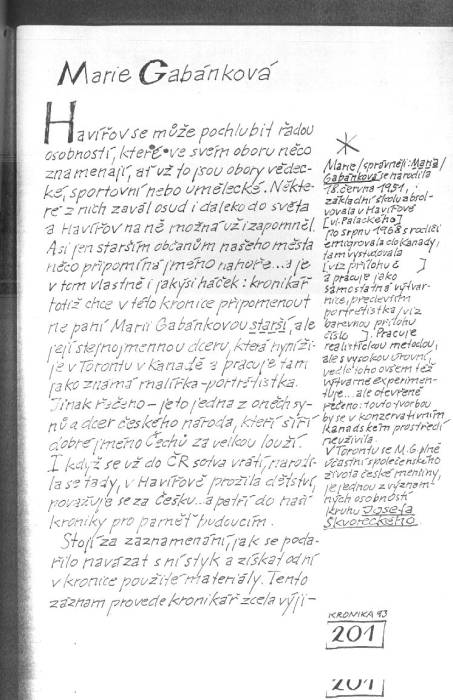 Marie Gabánková
Havířov se může pochlubit řadou
osobností, které ve svém oboru něco
znamenají, ať už to jsou obory vědec-
ké, sportovní nebo umělecké. Někte-
ré z nich zavál osud i daleko do světa
a Havířov na ně možná už i zapomněl.
Asi jen starším občanům našeho města
něco připomíná jméno nahoře...a je
v tom vlastně i jakýsi háček: kronikář
totiž chce v této kronice připomenout
ne paní Marii Gabánkovou starší, ale
její stejnojmennou dceru, která nyní ži-
je v Torontu v Kanadě a pracuje tam
jako známá malířka-portrétistka.
Jinak řečeno - je to jedna z oněch sy-
nů a dcer českého národa, kteří šíří
dobré jméno Čechů za velkou louží.
I když se už do ČR sotva vrátí, narodi-
la se tady, v Havířově prožila dětství,
považuje se za Češku...a patří do naší
kroniky pro paměť budoucím.
Stojí za zaznamenání, jak se poda-
řilo navázat s ní styk a získat od ní
v kronice použité materiály. Tento
záznam provede kronikář zcela výji-
*
Marie/správněji: Maria/
Gabánková se narodila
18.června 1951,
základní školu absol-
vovala v Havířově
[ul. Palackého]
Po srpnu 1968 s rodiči
emigrovala do Kanady,
tam vystudovala
[viz přílohu č ]
a pracuje jako
samostatná výtvar-
nice, především
portrétistka/viz
barevnou přílohu
číslo ]. Pracuje
realistickou metodou,
ale s vysokou úrovní,
vedle toho ovšem též
výtvarně experimen-
tuje...ale otevřeně
řečeno: touto tvorbou
by se v konzervativním
kanadském prostředí
neuživila.
V Torontu se M.G. plně
účastní společenského
života české menšiny,
je jednou z význam-
ných osobností
kruhu Josefa
Škvoreckého.
KRONIKA 93
201
201